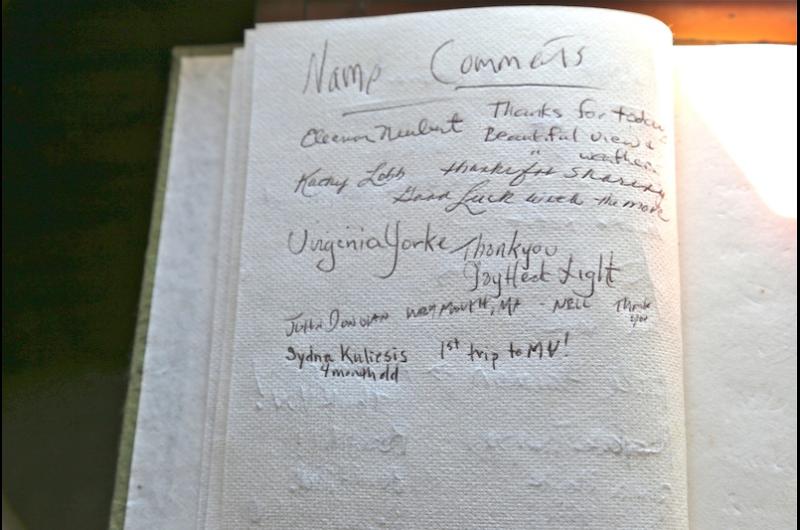 Name Comments
Eleanor Neubert Thanks for today
Beautiful views
" weather
Kathy Lobb thanks for sharing
Good Luck with the move
Virginia Yorke Thankyou
Gay Head Light
John Donovan Weymouth, MA - NELL Thank
you
Sydna Kuliesis 1st trip to MV!
4 month old